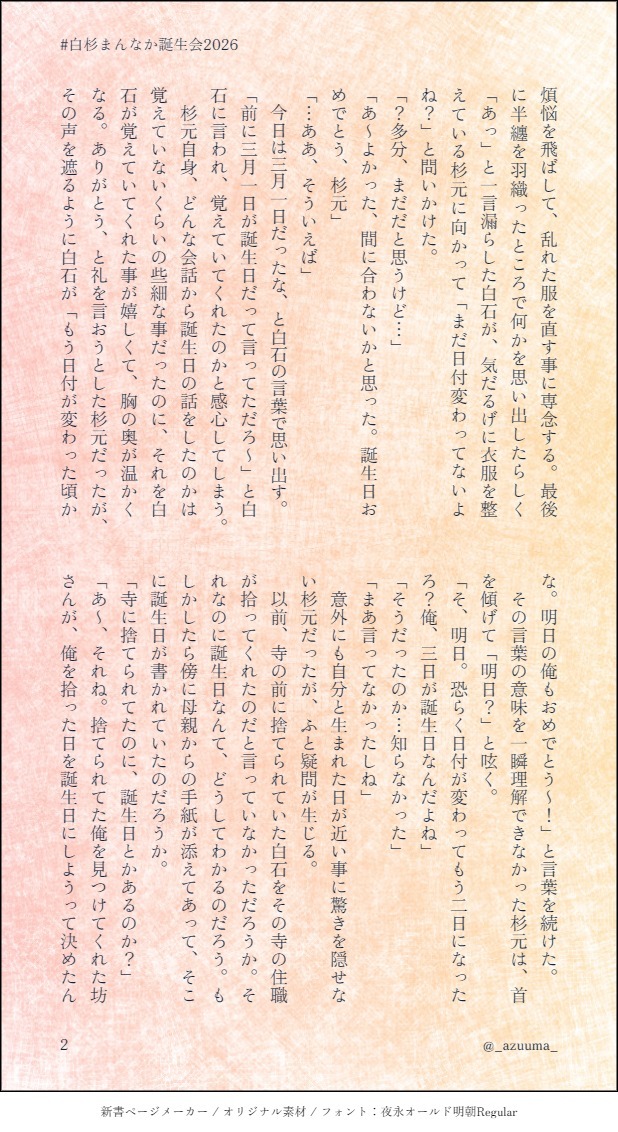 #白杉まんなか誕生会2026
煩悩を飛ばして、乱れた服を直す事に専念する。最後
に半纏を羽織ったところで何かを思い出したらしく
「あっ」と一言漏らした白石が、気だるげに衣服を整
えている杉元に向かって「まだ日付変わってないよ
ね？」と問いかけた。
「？多分、まだだと思うけど…」
「あ～よかった、間に合わないかと思った。誕生日お
めでとう、杉元」
「…ああ、そういえば」
今日は三月一日だったな、と白石の言葉で思い出す。
「前に三月一日が誕生日だって言ってただろ～」と白
石に言われ、覚えていてくれたのかと感心してしまう。
杉元自身、どんな会話から誕生日の話をしたのかは
覚えていないくらいの些細な事だったのに、それを白
石が覚えていてくれた事が嬉しくて、胸の奥が温かく
なる。ありがとう、と礼を言おうとした杉元だったが、
その声を遮るように白石が「もう日付が変わった頃か
な。明日の俺もおめでとう～！」と言葉を続けた。
その言葉の意味を一瞬理解できなかった杉元は、首
を傾げて「明日？」と呟く。
「そ、明日。恐らく日付が変わってもう二日になった
ろ？俺、三日が誕生日なんだよね」
「そうだったのか…知らなかった」
「まあ言ってなかったしね」
意外にも自分と生まれた日が近い事に驚きを隠せな
い杉元だったが、ふと疑問が生じる。
以前、寺の前に捨てられていた白石をその寺の住職
が拾ってくれたのだと言っていなかっただろうか。そ
れなのに誕生日なんて、どうしてわかるのだろう。も
しかしたら傍に母親からの手紙が添えてあって、そこ
に誕生日が書かれていたのだろうか。
「寺に捨てられてたのに、誕生日とかあるのか？」
「あ～、それね。捨てられてた俺を見つけてくれた坊
さんが、俺を拾った日を誕生日にしようって決めたん
2
@_azuuma_
新書ページメーカー / オリジナル素材 / フォント：夜永オールド明朝Regular